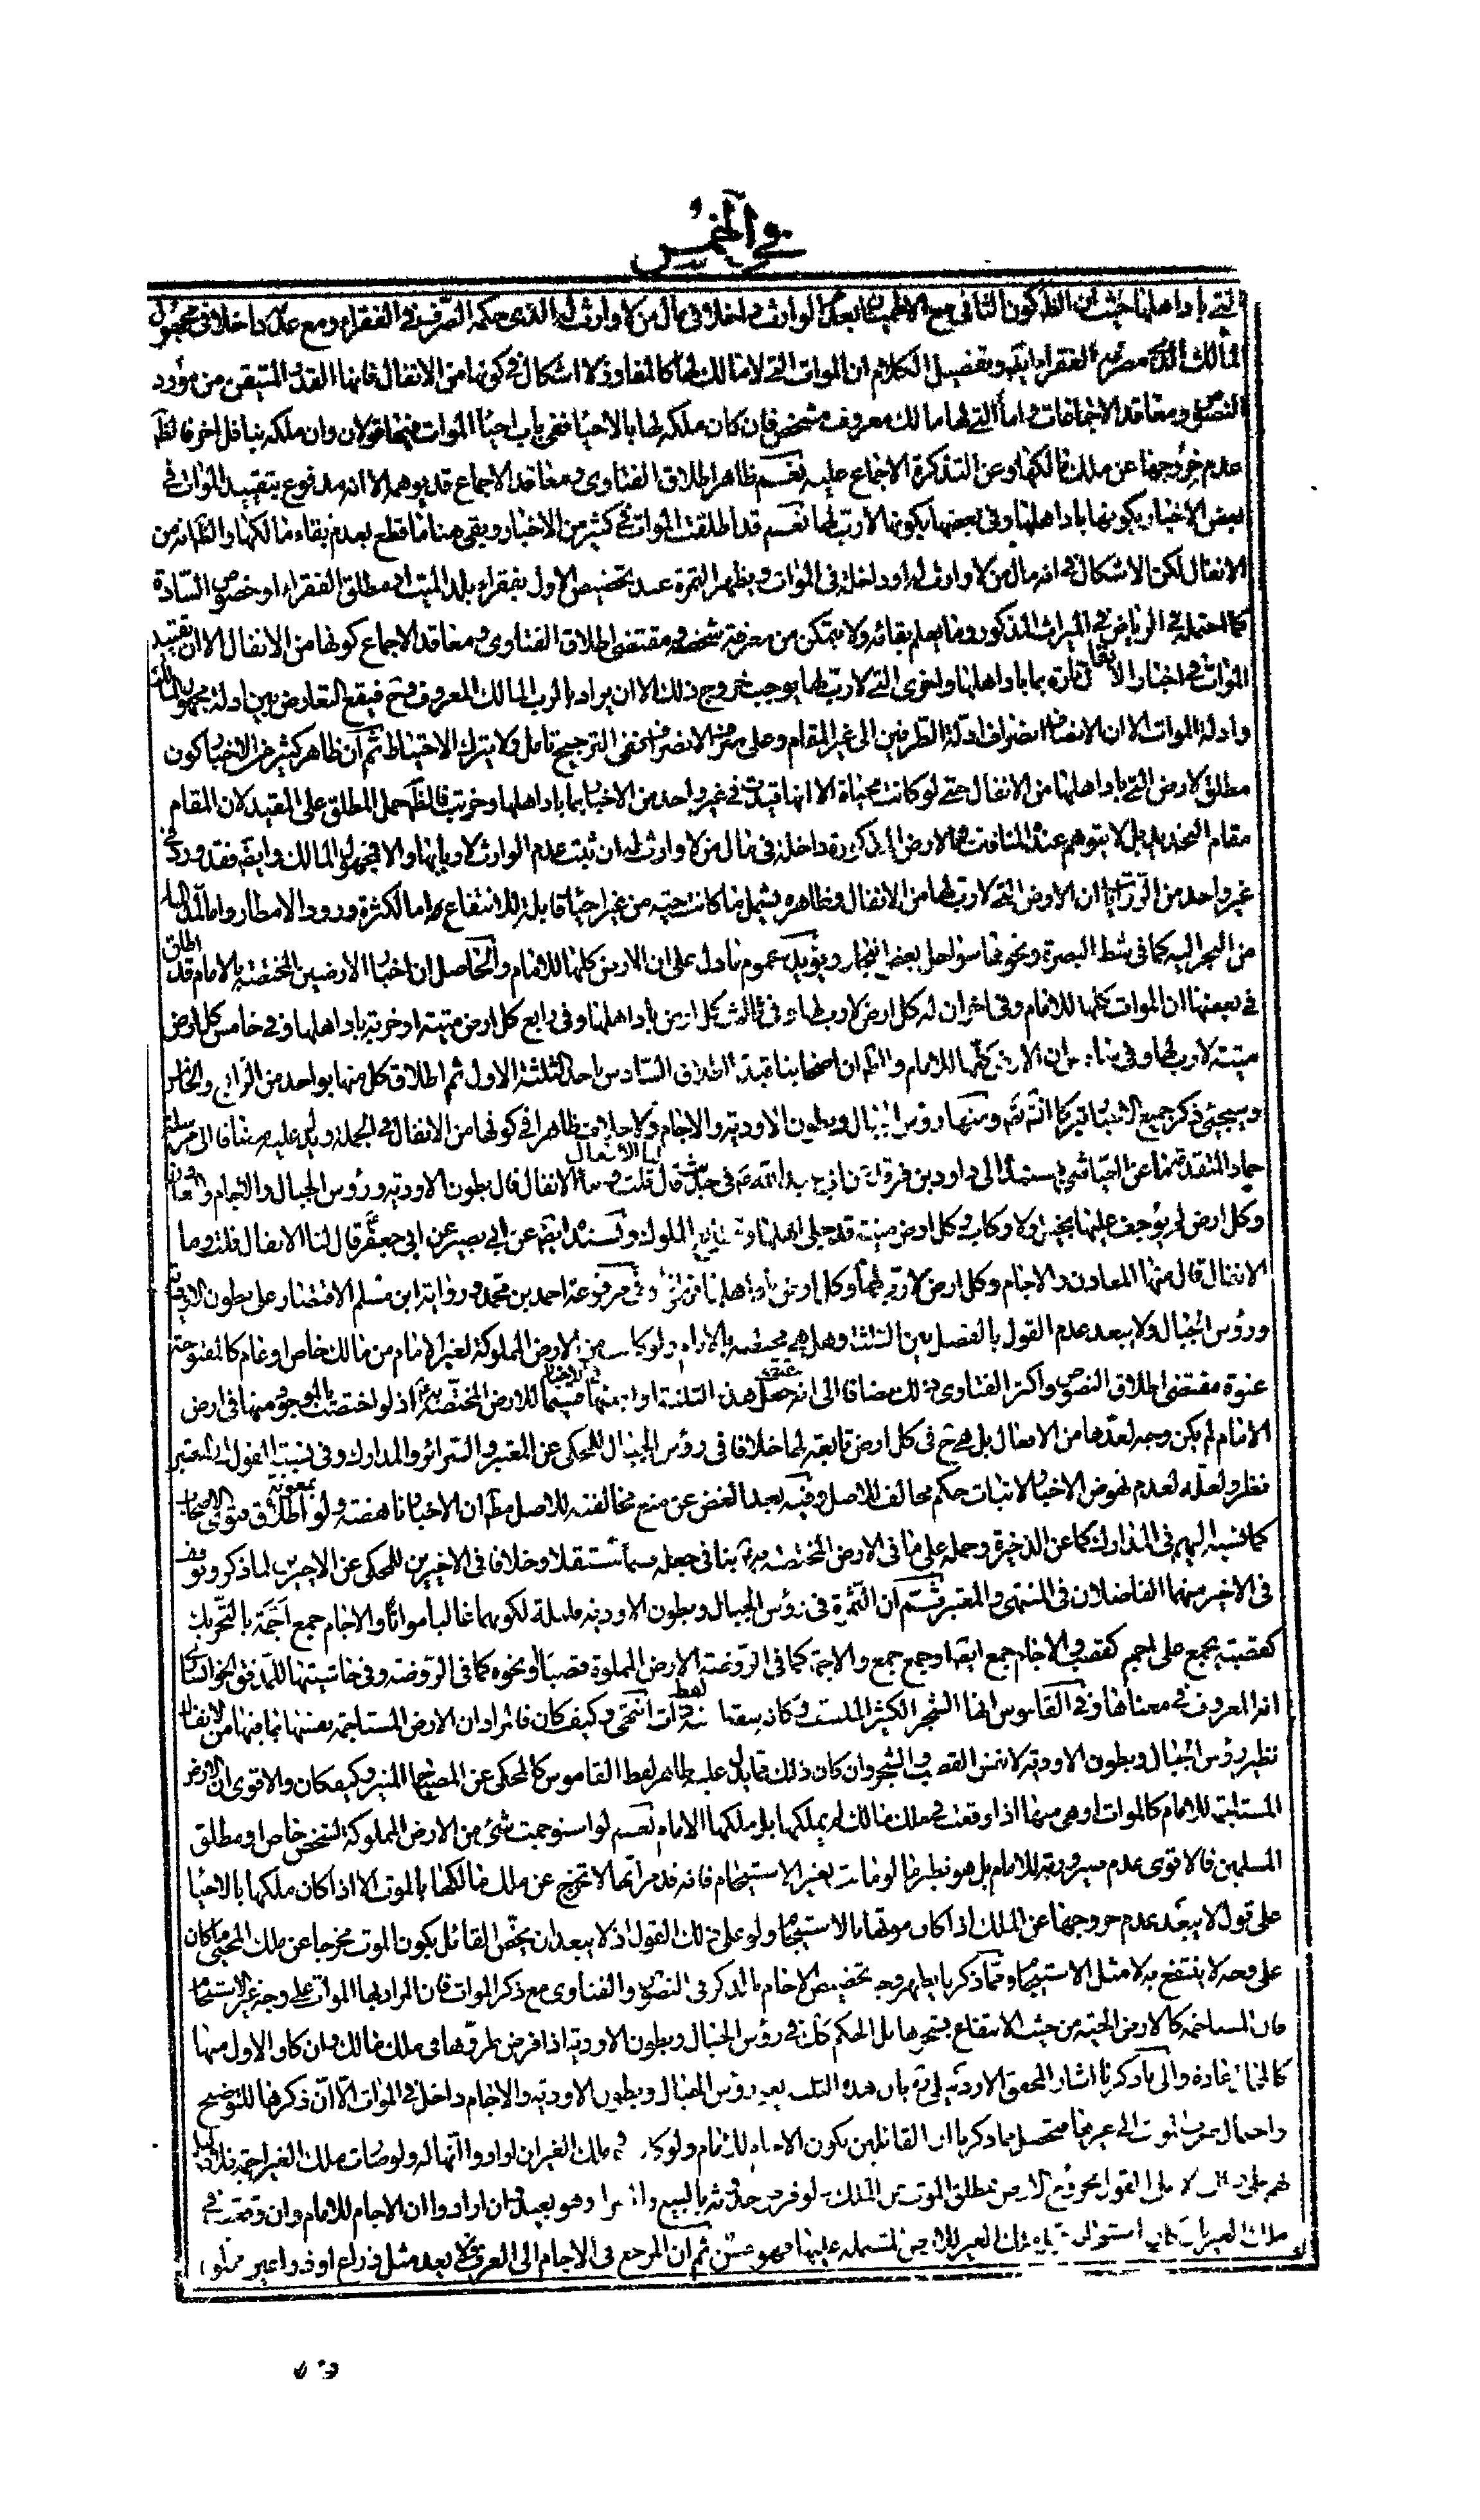 في الخمس
التي باد اهلها حيث ان الظ كون الثاني مع الاطمينان بعدم الوارث داخلا في مال من لا وارث له الذي حكمه الصرف في الفقراء ومع عدمه داخلا في مجهول
المالك الذي مصرفه الفقراء ايضا وتفصيل الكلام ان الموات التي لا مالك لها كالمفاوز لا اشكال في كونها من الانفال فانها القدر المتيقن من مورد
النصوص ومعاقد الاجماعات واما التي لها مالك معروف مشخص فان كان ملكه لها بالاحياء ففي باب احياء الموات فيها قولان وان ملكه بناقل اخر فالظ
عدم خروجها عن ملك مالكها وعن التذكرة الاجماع عليه نعم ظاهر اطلاق الفتاوى ومعاقد الاجماع قد يوهمه الا انه مدفوع بتقييد الموات في
بعض الاخبار بكونها باد اهلها وفي بعضها بكونها لا رب لها نعم قد اطلقت الموات في كثير من الاخبار وبقي هنا ما قطع بعدم بقاء مالكها والظ انه من
الانفال لكن الاشكال في انه مال من لا وارث له او داخل في الموات ويظهر الثمرة عند تخصيص الاول بفقراء بلد الميت او مطلق الفقراء او خصوص السادة
كما احتمله في الرياض في الميراث المذكور وما يعلم بقائه ولا يتمكن من معرفة شخصه ومقتضى اطلاق الفتاوى ومعاقد الاجماع كونها من الانفال الا ان تقييد
الموات في اخبار الانفال تارة بما باد اهلها واخرى التي لا رب لها يوجب خروج ذلك الا ان يراد بالرب المالك المعروف وح فيقع التعارض بين ادلة مجهول المالك
وادلة الموات الا ان الانصاف انصراف ادلة الطرفين الى غير المقام وعلى فرض الانصراف ففي الترجيح تامل ولا يترك الاحتياط ثم ان ظاهر كثير من الاخبار كون
مطلق الارض التي باد اهلها من الانفال حتى لو كانت محياة الا انها قيدت في غير واحد من الاخبار بما باد اهلها وخربت فالظ حمل المطلق على المقيد لان المقام
مقام التحديد بل لا يتوهم عند المنافت ما الارض المذكورة داخلة في مال من لا وارث له ان ثبت عدم الوارث لاربابها والا فمجهول المالك وايضا فقد ورد في
غير واحد من الروايات ان الارض التي لا رب لها من الانفال وظاهره يشمل ما كانت حية من غير احياء قابلة للانتفاع بها اما لكثرة ورود الامطار واما لمد الماء
من البحر اليه كما في شط البصرة ونحوها سواحل بعض البحار ويؤيده عموم ما دل على ان الارض كلها للامام والحاصل ان اخبار الارضين المختصة بالامام قد اطلق
في بعضها ان الموات كلها للامام وفي اخر ان له كل ارض لا رب لها وفي ثالث كل ارض باد اهلها وفي رابع كل ارض ميتة او خربة باد اهلها وفي خامس كل ارض
ميتة لا رب لها وفي ان الارض كلها للامام والظ ان اصحابنا قيدوا اطلاق السادس باحد الثلثة الاول ثم اطلاق كل منها بواحد من الرابع والخامس
وسيجئ ذكر جميع انشاء الله تعالى ومنها رؤس الجبال وبطون الاودية والاجام ولا خلاف ظاهرا في كونها من الانفال في الجملة ويدل عليه مضافا الى مرسلة
حماد المتقدمة ما عن العياشي بسنده الى داود بن فرقد عن ابي عبد الله ع في حديث قال قلت وما الانفال قال بطون الاودية ورؤس الجبال والاجام والمعادن
وكل ارض لم يوجف عليها بخيل ولا ركاب وكل ارض ميتة قد جلى اهلها وقطايع الملوك وبسنده ايضا عن ابي بصير عن ابي جعفر ع قال لنا الانفال قلت وما
الانفال قال منها المعادن والاجام وكل ارض لا رب لها وكل ارض باد اهلها فهو لنا وفي مرفوعة احمد بن محمد ورواية ابن مسلم الاقتصار على بطون الاودية
ورؤس الجبال ولا يبعد عدم القول بالفصل بين الثلثة وهل هي مختصة بالامام ولو كانت من الارض المملوكة لغير الامام من مالك خاص او عام كالمفتوحة
عنوة مقتضى اطلاق النصوص واكثر الفتاوى ذلك مضافا الى انه جعل هذه الثلثة او اثنين منها قسيما للارض المختصة به اذ لو اختصت بالموجود منها في ارض
الامام لم يكن وجه لعدها من الانفال بل هي ح في كل ارض تابعة لها خلافا في رؤس الجبال للمحكي عن المعتبر والسرائر والمدارك وفي نسبة القول الى المعتبر
نظر ولعله لعدم نهوض الاخبار لاثبات حكم مخالف للاصل وفيه بعد الغض عن منع مخالفته للاصل مط ان الاخبار ناهضة ولو بمعونة اطلاق فتوى الاصحاب
كما نسبه اليهم في المدارك كما عن الذخيرة وحمله على ما في الارض المختصة به ينافي جعله قسما مستقلا وخلافا في الاخيرين للمحكي عن الاخيرين لما ذكر وتوقف
في الاخير منهما الفاضلان في المنتهى والمعتبر ثم ان الثمرة في رؤس الجبال وبطون الاودية قليلة لكونهما غالبا مواتا والاجام جمع اجمة بالتحريك
كقصبة يجمع على اجم كقصب والاجام جمع ايضا او جمع جمع والاجمة كما في الروضة الارض المملوة قصبا ونحوه كما في الروضة وفي حاشيتها للمدقق الخوانساري
انه المعروف في معناها وفي القاموس انها الشجر الكثير الملتف وكانه سقط لفظ ذات انتهى وكيف كان فالمراد ان الارض المستاجمة بعينها بما فيها من الانفال
نظير رؤس الجبال وبطون الاودية لا نفس القصب والشجر وان كان ذلك مما يدل عليه ظاهر لفظ القاموس كالمحكي عن المصباح المنير وكيف كان والاقوى ان الارض
المستاجمة للامام كالموات او هي منها اذا وقعت في ملك مالك لم يملكها بل ملكها الامام نعم لو استوجمت شئ من الارض المملوكة لشخص خاص او مطلق
المسلمين فالاقوى عدم صيرورته للامام بل هو نظير ما لو ماتت بغير الاستيجام فانه قد مر انها لا تخرج عن ملك مالكها بالموت الا اذا كان ملكها بالاحياء
على قول لا يبعد عدم خروجها عن الملك اذا كان موتها بالاستيجام ولو على ذلك القول اذ لا يبعد ان يخص القائل بكون الموت مخرجا عن ملك المحيي ما كان
على وجه لا ينتفع به لا مثل الاستيجام ومما ذكرنا يظهر وجه تخصيص الاجام بالذكر في النصوص والفتاوى مع ذكر الموات فان المراد بها الموات على وجه غير الاستيجام
فان المستاجمة كالارض الحية من حيث الانتفاع بشجرها بل الحكم كك في رؤس الجبال وبطون الاودية اذا فرض طروها في ملك مالك وان كان الاول منها
عادة والى ما ذكرنا اشار المحقق الاردبيلي ره بان هذه الثلثة يعني رؤس الجبال وبطون الاودية والاجام داخل في الموات الا ان ذكرها للتوضيح
واحتمال الى غيرها فتحصل مما ذكرنا ان القائلين بكون الاجام للامام ولو كان في ملك الغير ان ارادوا انها له ولو صارت ملك الغير اجمة فلا دليل
لهم على ذلك الا على القول بخروج الارض بمطلق الموت عن الملك لو فرض حدوثه بالبيع والشراء وهو بعيد وان ارادوا ان الاجام للامام وان وقعت في
ملك الغير ملك الغير للارض المشتملة عليها فهو حسن ثم ان المرجع في الاجام الى العرف فلا يعد مثل ذراع او ذراعين مملو